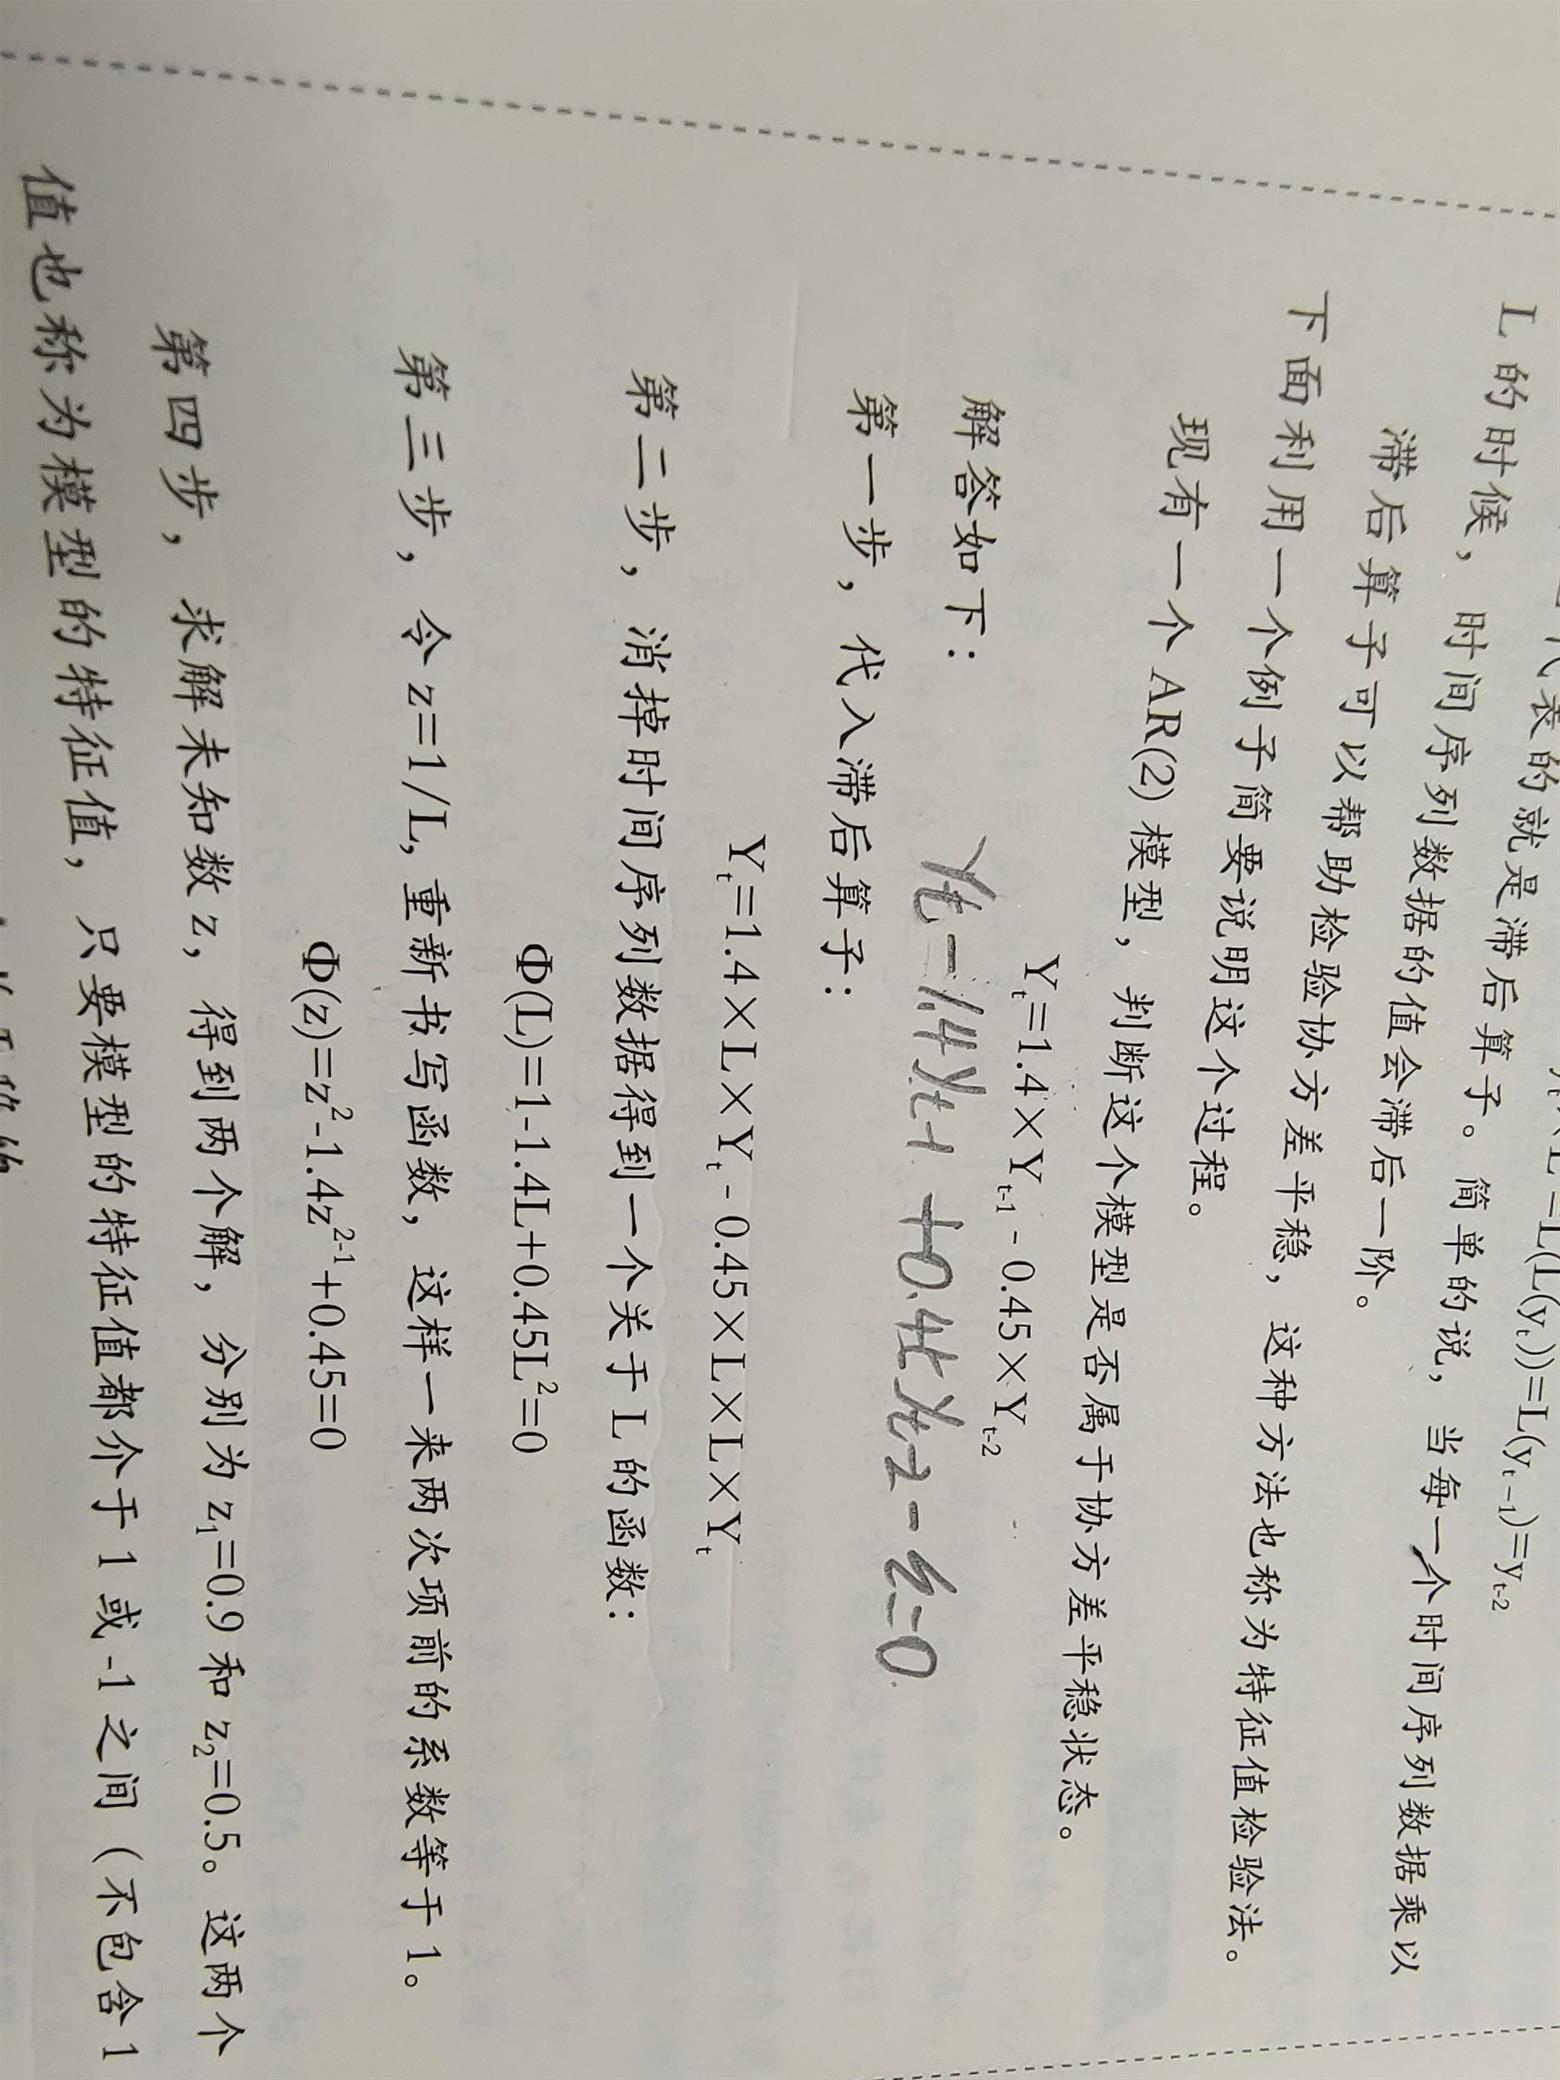 代表的就是滞后算子。简单的说，当每一个时间序列数据乘以
L(L(yₜ))=L(yₜ₋₁)=yₜ₋₂
L 的时候，时间序列数据的值会滞后一阶。
滞后算子可以帮助检验协方差平稳，这种方法也称为特征值检验法。
下面利用一个例子简要说明这个过程。
现有一个 AR(2) 模型，判断这个模型是否属于协方差平稳状态。
Yₜ=1.4×Yₜ₋₁-0.45×Yₜ₋₂
解答如下：
yt-1.4yt-1+0.45yt-2-ε=0
第一步，代入滞后算子：
Yₜ=1.4×L×Yₜ-0.45×L×L×Yₜ
第二步，消掉时间序列数据得到一个关于 L 的函数：
Φ(L)=1-1.4L+0.45L²=0
第三步，令 z=1/L,重新书写函数，这样一来两次项前的系数等于 1。
Φ(z)=z²-1.4z²⁻¹+0.45=0
第四步，求解未知数 z，得到两个解，分别为 z₁=0.9 和 z₂=0.5。这两个
值也称为模型的特征值，只要模型的特征值都介于 1 或 -1 之间（不包含 1